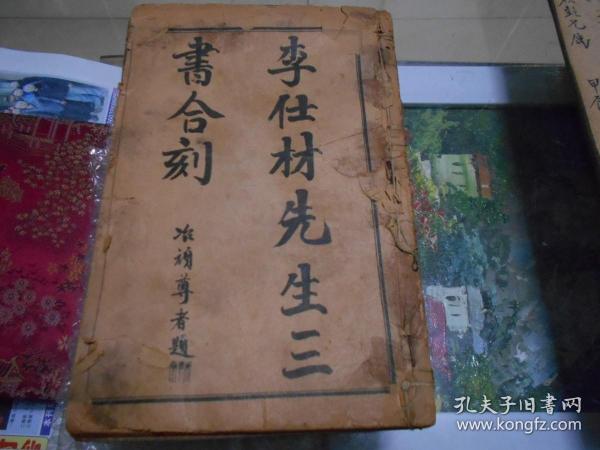 李仕材先生三
書合刻
尊者題
孔夫子旧书网
www.kongfz.com